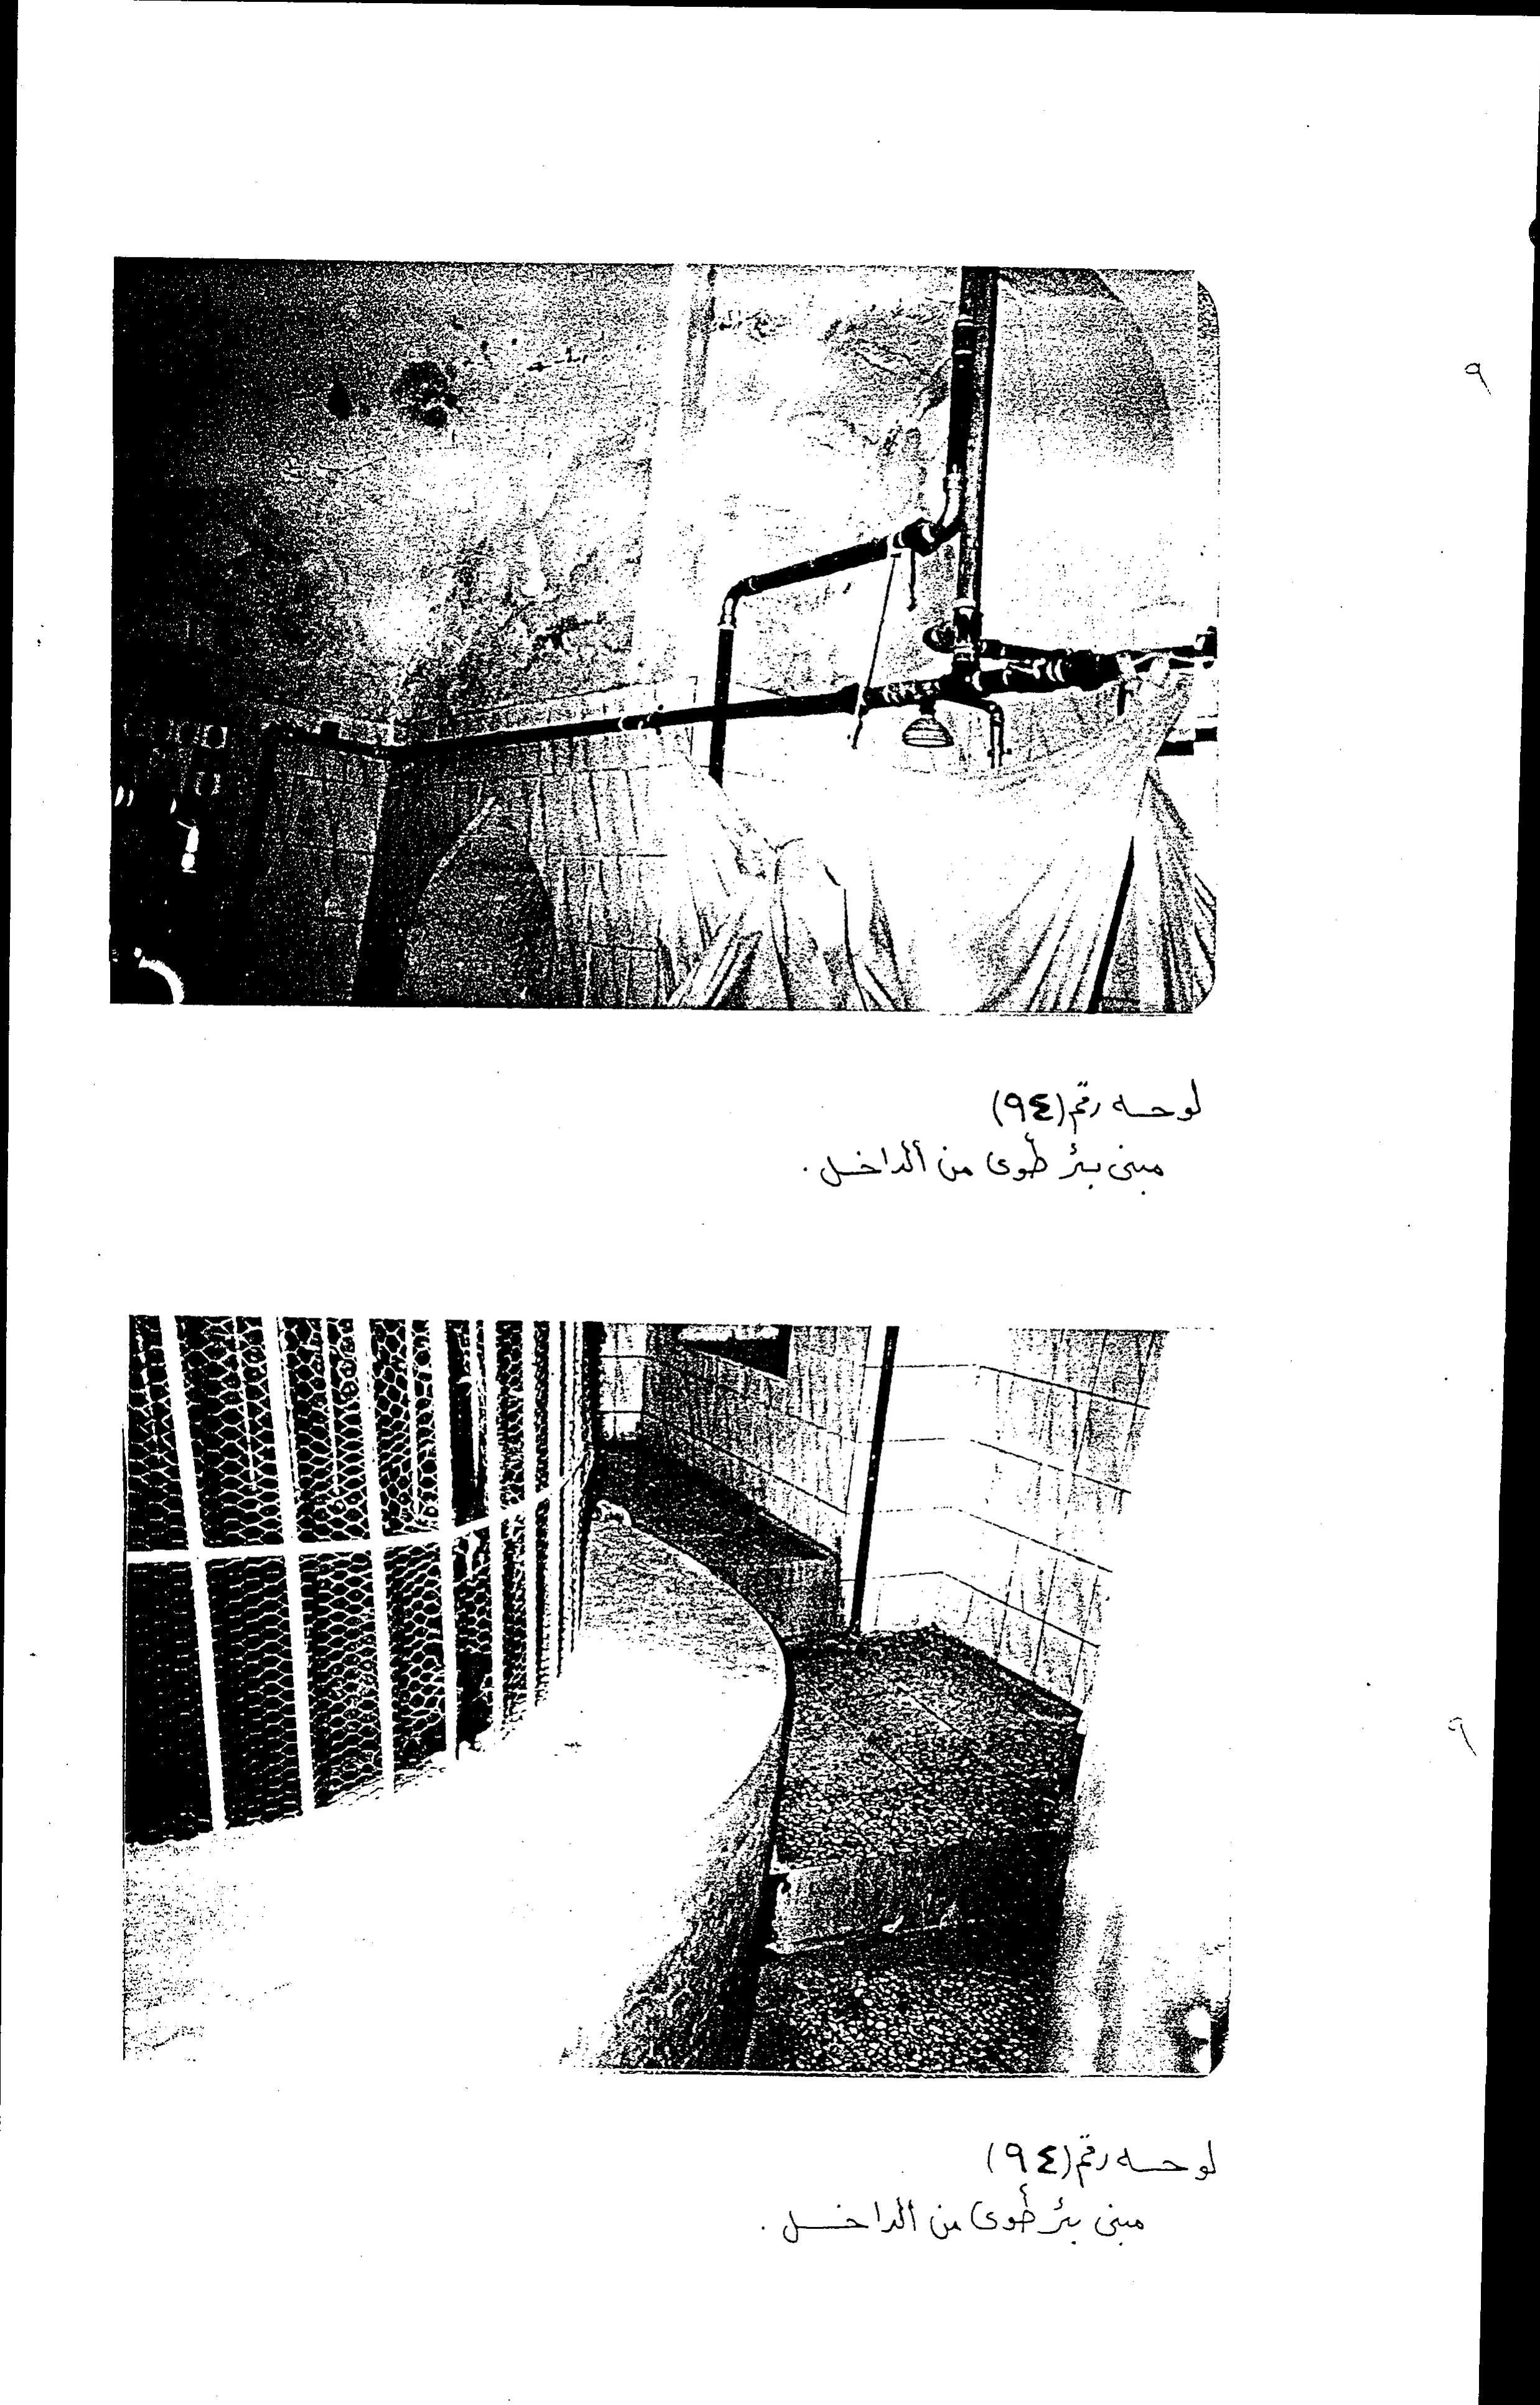 لوحه رقم (٩٤)
مبنى بئر طوى من الداخل.
لوحه رقم (٩٤)
مبنى بئر طوى من الداخل.